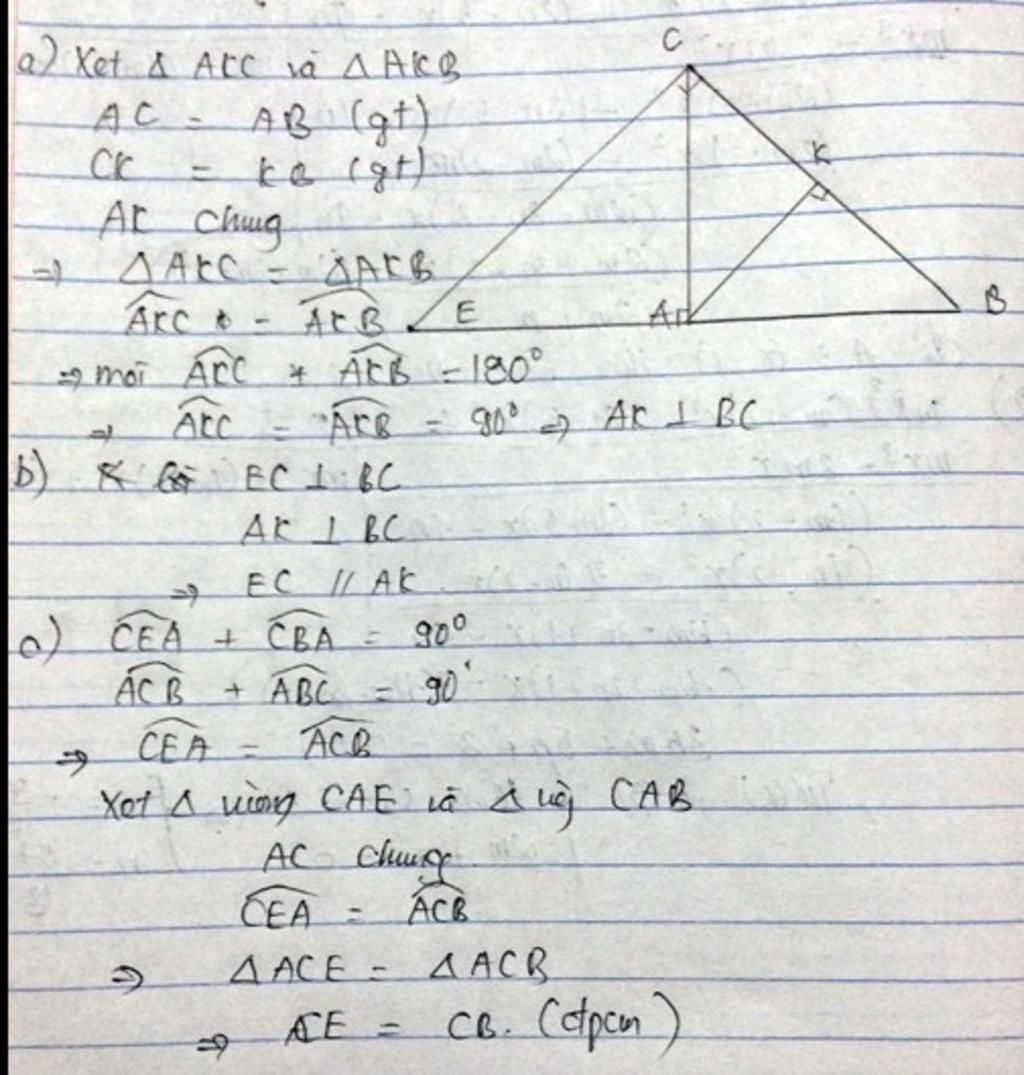 a) Xét Δ AKC và Δ AKB
AC = AB (gt)
CK = KB (gt)
AK chung
⇒ ΔAKC = ΔAKB
\widehat{AKC} = \widehat{AKB}
⇒ mà \widehat{AKC} + \widehat{AKB} = 180°
⇒ \widehat{AKC} = \widehat{AKB} = 90° ⇒ AK ⊥ BC
b) EC ⊥ BC
AK ⊥ BC
⇒ EC // AK
c) \widehat{CEA} + \widehat{CBA} = 90°
\widehat{ACB} + \widehat{ABC} = 90°
⇒ \widehat{CEA} = \widehat{ACB}
Xét Δ vuông CAE và Δ vg CAB
AC chung
\widehat{CEA} = \widehat{ACB}
⇒ ΔACE = ΔACB
⇒ CE = CB. (đpcm)
C
K
E
A
B